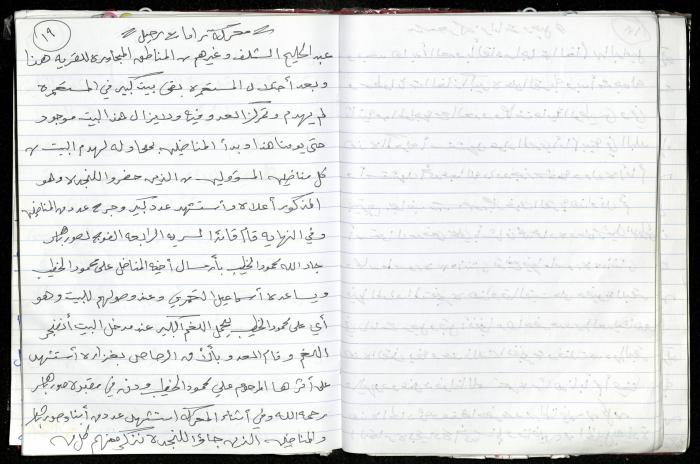 ١٩
معركة راما ت رحيل
عبد الحليم الشلف وغيرهم من المناطق المجاورة للقرية هذا
وبعد أحتلال المستعمره بقى بيت كبير في المستعمره
لم يهدم وتمركز العدو فيه ولا يزال هذا البيت موجود
حتى يومنا هذا وبدأ المناضلين بمحاوله لهدم البيت من
كل مناضلين المسؤولين من الذين حضروا للنجده وهو
المذكور أعلاه وأستشهد عدد كبير وجرح عدد من المناضلين
وفي النهايه قام قائد السريه الرابعه الفوج لصور باهر
جاد الله محمود الخطيب بأرسال أخيه المناضل على محمود الخطيب
ويساعده أسماعيل العمري وعند وصولهم للبيت وهو
أي على محمود الخطيب يحمل اللغم الكبير عند مدخل البيت أنفجر
اللغم وقام العدو بألأق الرصاص بغزاره أستشهد
على أثرها المرحوم علي محمود الخطيب ودفن في مقبرة صور باهر
رحمة الله وفي أثناء المعركة استشهد عدد من أبناء صور باهر
والمناضلين الذين جاؤا للنجدة نذكر منهم كل من